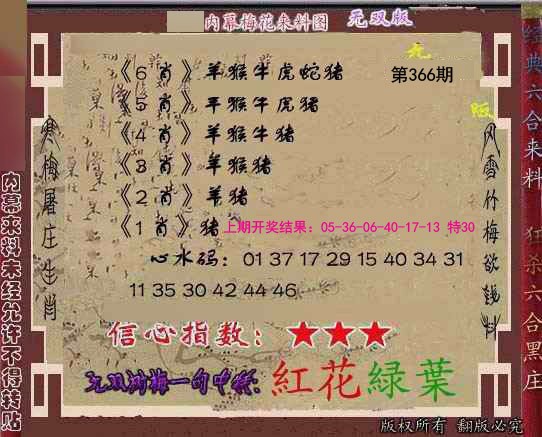 内幕梅花来料图 无双版
无
版
第366期
《6 肖》羊猴牛虎蛇猪
《5 肖》羊猴牛虎猪
《4 肖》羊猴牛猪
《3 肖》羊猴猪
《2 肖》羊猪
《1 肖》猪
上期开奖结果：05-36-06-40-17-13 特30
心水码：01 37 17 29 15 40 34 31
11 35 30 42 44 46
信心指数：★★★
无双 梅一句中特: 紅花緑葉
寒梅屠庄生肖
风雪竹梅欲钱料
内幕来料未经允许不得转贴
经典六合来料 狂杀六合黑庄
版权所有 翻版必究